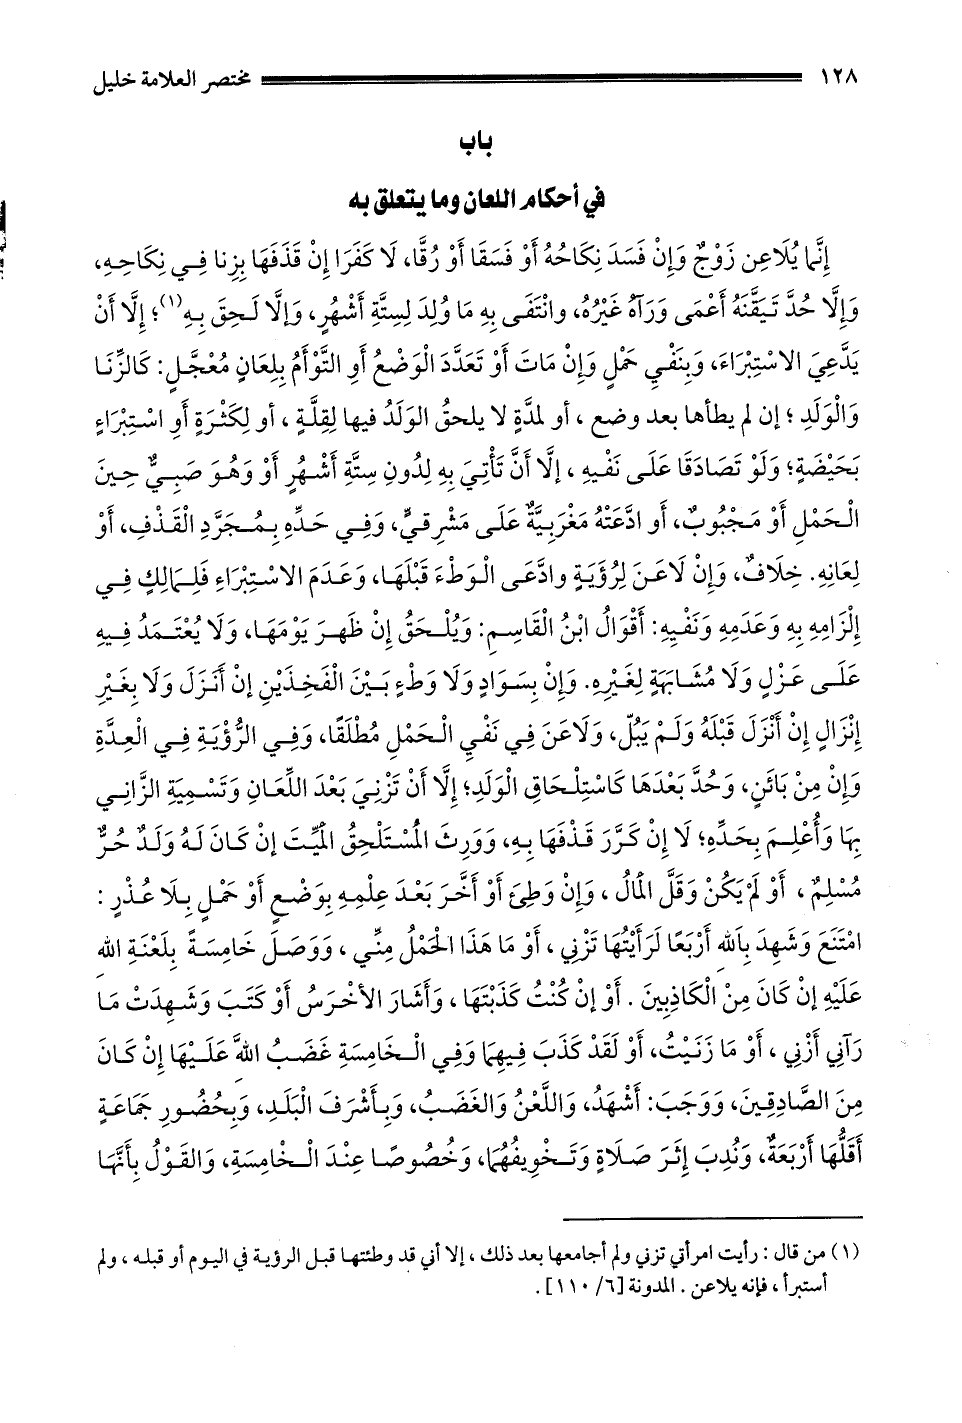 ١٢٨ مختصر العلامة خليل
باب
في أحكام اللعان وما يتعلق به
إِنَّمَا يُلَاعِن زَوْجٌ وَإِنْ فَسَدَ نِكَاحُهُ أَوْ فَسَقَا أَوْ رُقَّا، لَا كَفَرَا إِنْ قَذَفَهَا بِزِنا فِي نِكَاحِهِ،
وَإِلَّا حُدَّ تَيَقَّنَهُ أَعْمَى وَرَآهُ غَيْرُهُ، وانْتَفَى بِهِ مَا وُلِدَ لِسِتَّةِ أَشْهُرٍ، وَإِلا لَحِقَ بِهِ(١)؛ إِلَّا أَنْ
يَدَّعِيَ الاسْتِبْرَاءَ، وَبِنَفْيِ حَمْلٍ وَإِنْ مَاتَ أَوْ تَعَدَّدَ الْوَضْعُ أَوِ التَّوْأَمُ بِلِعَانٍ مُعْجَّلٍ: كَالزِّنَا
وَالْوَلَدِ ؛ إن لم يطأها بعد وضع ، أو لمدَّةٍ لا يلحقُ الوَلَدُ فيها لِقِلَّةٍ ، أو لِكَثْرَةٍ أَوِ اسْتِبْرَاءٍ
بَحَيْضَةٍ؛ وَلَوْ تَصَادَقَا عَلَى نَفْيِهِ ، إلَّا أَنَّ تَأْتِيَ بِهِ لِدُونِ سِتَّةِ أَشْهُرٍ أَوْ وَهُوَ صَبِيٌّ حِينَ
الْحَمْلِ أَوْ مَجْبُوبٌ، أَو ادَّعَتْهُ مَغْرَبِيَّةٌ عَلَى مَشْرِقيٍّ، وَفِي حَدِّهِ بِمُجَرَّدِ الْقَذْفِ، أَوْ
لِعَانِهِ. خِلَافٌ، وَإِنْ لَاعَنَ لِرُؤْيَةٍ وادَّعَى الْوَطْءَ قَبْلَهَا، وَعَدَمَ الاسْتِبْرَاءِ فَلِمَالِكٍ فِي
إِلْزَامِهِ بِهِ وَعَدَمِهِ وَنَفْيِهِ: أَقْوَالُ ابْنُ الْقَاسِمِ: وَيُلْحَقُ إِنْ ظَهَرَ يَوْمَهَا، وَلَا يُعْتَمَدُ فِيهِ
عَلَى عَزْلٍ وَلَا مُشَابَهَةٍ لِغَيْرِهِ. وَإِنْ بِسَوَادٍ وَلَا وَطْءٍ بَيْنَ الْفَخِذَيْنِ إنْ أَنْزَلَ وَلَا بِغَيْرِ
إنْزَالٍ إِنْ أَنْزَلَ قَبْلَهُ وَلَمْ يَبُلْ، وَلَاعَنَ فِي نَفْيِ الْحَمْلِ مُطْلَقًا، وَفِي الرُّؤْيَةِ فِي الْعِدَّةِ
وَإِنْ مِنْ بَائِنٍ، وَحُدَّ بَعْدَهَا كَاسْتِلْحَاقِ الْوَلَدِ؛ إِلَّا أَنْ تَزْنِيَ بَعْدَ اللِّعَانِ وَتَسْمِيَةِ الزَّانِي
بِهَا وَأُعْلِمَ بِحَدِّهِ؛ لَا إِنْ كَرَّرَ قَذْفَهَا بِهِ، وَوَرِثَ الْمُسْتَلْحِقُ الْمَيِّتَ إِنْ كَانَ لَهُ وَلَدٌ حُرٌّ
مُسْلِمٌ ، أَوْ لَمْ يَكُنْ وَقَلَّ الْمَالُ ، وَإِنْ وَطِئَ أَوْ أَخَّرَ بَعْدَ عِلْمِهِ بِوَضْعٍ أَوْ حَمْلٍ بِلَا عُذْرٍ :
امْتَنَعَ وَشَهِدَ بِاَللهِ أَرْبَعًا لَرَأَيْتُهَا تَزْنِي ، أَوْ مَا هَذَا الْحَمْلُ مِنِّي ، وَوَصَلَ خَامِسَةً بِلَعْنَةِ اللهِ
عَلَيْهِ إنْ كَانَ مِنْ الْكَاذِبِينَ . أَوْ إنْ كُنْتُ كَذَبْتَهَا ، وَأَشَارَ الأَخْرَسُ أَوْ كَتَبَ وَشَهِدَتْ مَا
رَآنِي أَزْنِي ، أَوْ مَا زَنَيْتُ، أَوْ لَقَدْ كَذَبَ فِيهِمَا وَفِي الْخَامِسَةِ غَضَبُ اللهَّ عَلَيْهَا إنْ كَانَ
مِنَ الصَّادِقِينَ، وَوَجَبَ: أَشْهَدُ، وَاللَّعْنُ وَالغَضَبُ، وَبِأَشْرَفِ الْبَلَدِ، وَبِحُضُورِ جَمَاعَةٍ
أَقَلُّهَا أَرْبَعَةٌ، وَنُدِبَ إِثْرَ صَلَاةٍ وَتَخْوِيفُهُمَا، وَخُصُوصًا عِنْدَ الْخَامِسَةِ، وَالقَوْلُ بِأَنَّهَا
(١) من قال : رأيت امرأتي تزني ولم أجامعها بعد ذلك ، إلا أني قد وطئتها قبل الرؤية في اليوم أو قبله ، ولم
أستبرأ ، فإنه يلاعن . المدونة [٦/ ١١٠] .